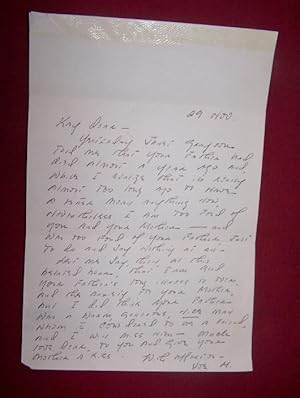 29 Nov
Kay dear —
Yesterday Janet
told me that your Father had
died almost a year ago and
while I realize that is really
almost too long ago to have
a note mean anything now,
nevertheless I am too fond of
you and your Mother — and
was too fond of your Father just
to be and say nothing at all —
let me say then at this
belated hour, that I am sad
your Father's long illness is over,
and the anxiety to your Mother,
but I did think your Father
was a warm, generous, man
whom I considered to be a friend,
and I will miss him — much
love dear, to you and give your
Mother a kiss. With affection —